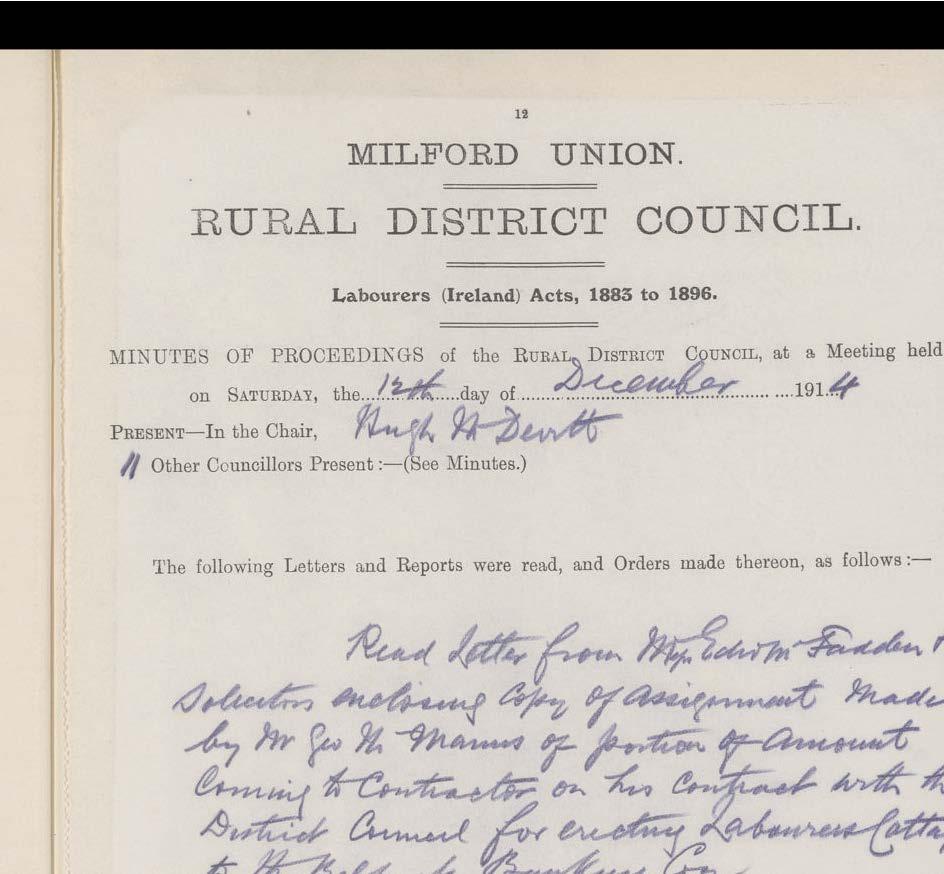 12
MILFORD UNION.
RURAL DISTRICT COUNCIL.
Labourers (Ireland) Acts, 1883 to 1896.
MINUTES OF PROCEEDINGS of the RURAL DISTRICT COUNCIL, at a Meeting held
on SATURDAY, the 12th day of December 1914
PRESENT—In the Chair, Hugh McDevitt
11 Other Councillors Present :—(See Minutes.)
The following Letters and Reports were read, and Orders made thereon, as follows :—
Read Letter from Edw Mc Fadden
Solicitors enclosing Copy of Assignment Made
by Mr Geo Mc Manus of portion of Amount
Coming to Contractor on his contract with
District Council for erecting Labourers
to the Belfast Banking Coy